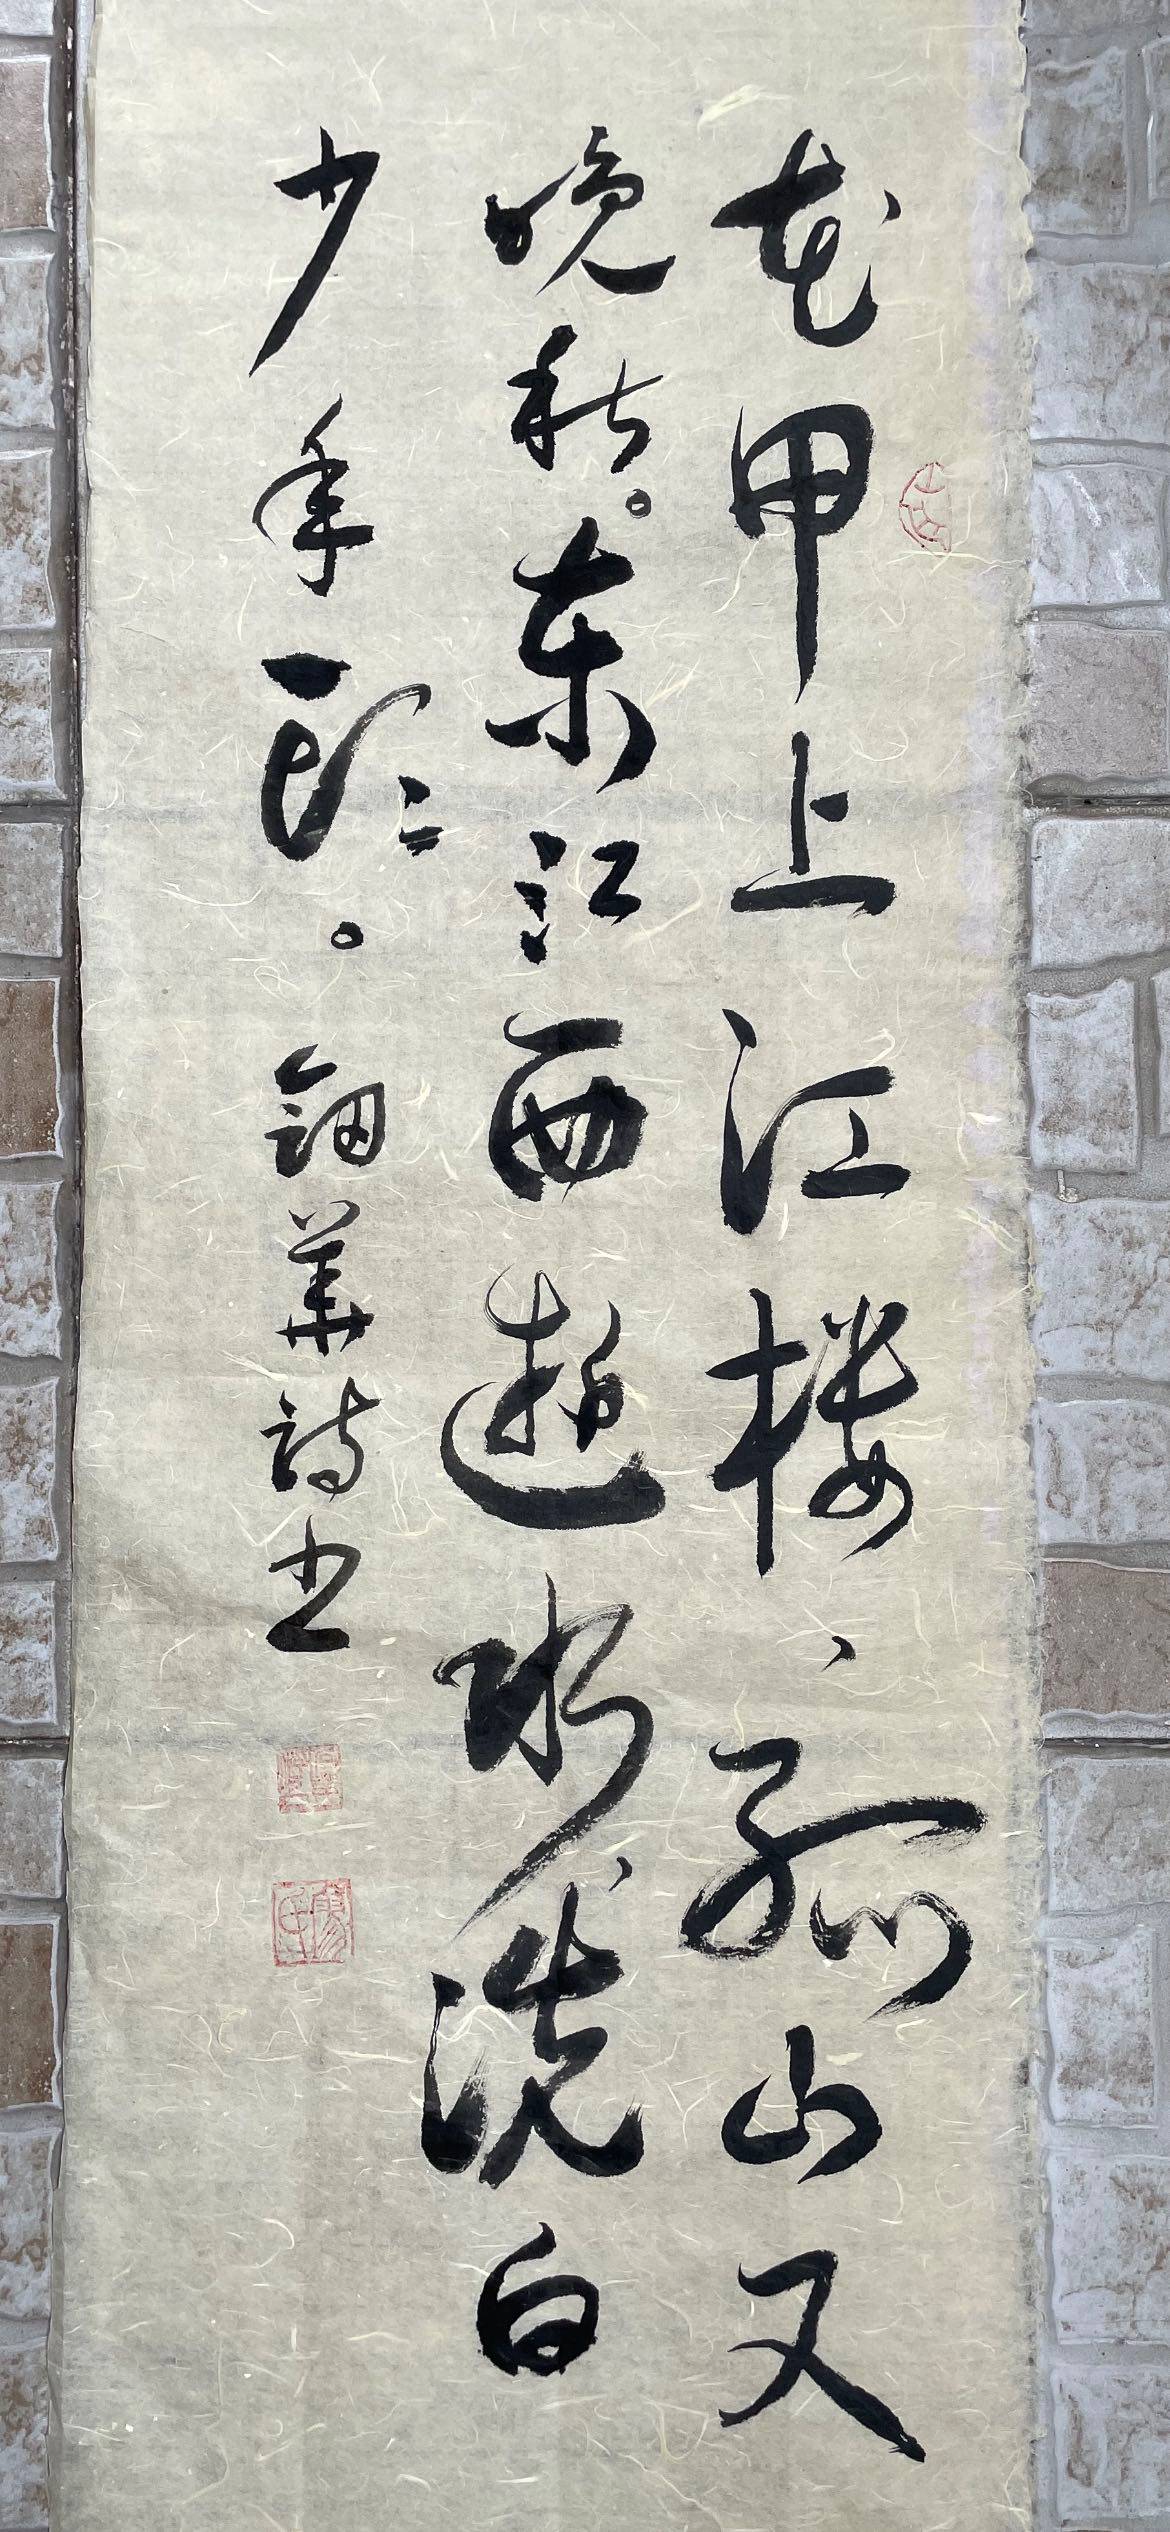 花甲上江楼、孤山又
晚秋。东江西逝水、洗白
少年头。钿华诗书